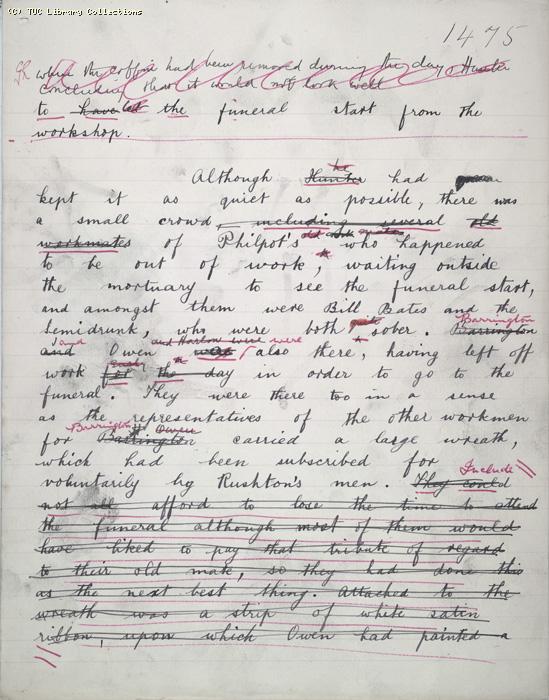 (C) TUC Library Collections
1475
when the coffin had been removed during the day, Hunter
concluding that it would not look well
to have let the funeral start from the
workshop.
Although Hunter he had
kept it as quiet as possible, there was
a small crowd, including several old
workmates of Philpot's old who happened
to be out of work, waiting outside
the mortuary to see the funeral start,
and amongst them were Bill Bates and the
Semidrunk, who were both quite sober. Barrington Barrington
and and Owen and Harlow were were also there, having left off
work for the day in order to go to the
funeral. They were there too in a sense
as the representatives of the other workmen
for Barrington Barrington Owen carried a large wreath,
which had been subscribed for
voluntarily by Rushton's men. Include They could
not all afford to lose the time to attend
the funeral although most of them would
have liked to pay that tribute of regard
to their old mate, so they had done this
as the next best thing. Attached to the
wreath was a strip of white satin
ribbon, upon which Owen had painted a